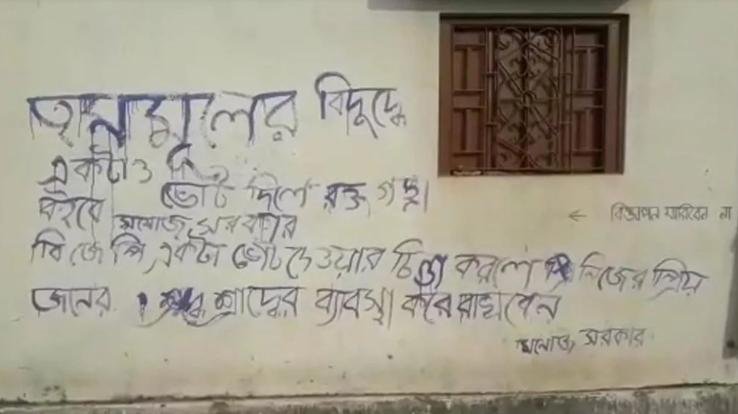 তৃনমূলের বিদুদ্ধে
একটাও ভোট দিলে রক্ত গঙ্গা
বইবে মনোজ সরকার
বিজেপি একটা ভোট দেওয়ার চিন্তা করলে নিজের প্রিয়
জনের শ্রাদ্ধের ব্যবস্থা করে রাখবেন
মনোজ সরকার
← বিজ্ঞাপন মারিবেন না